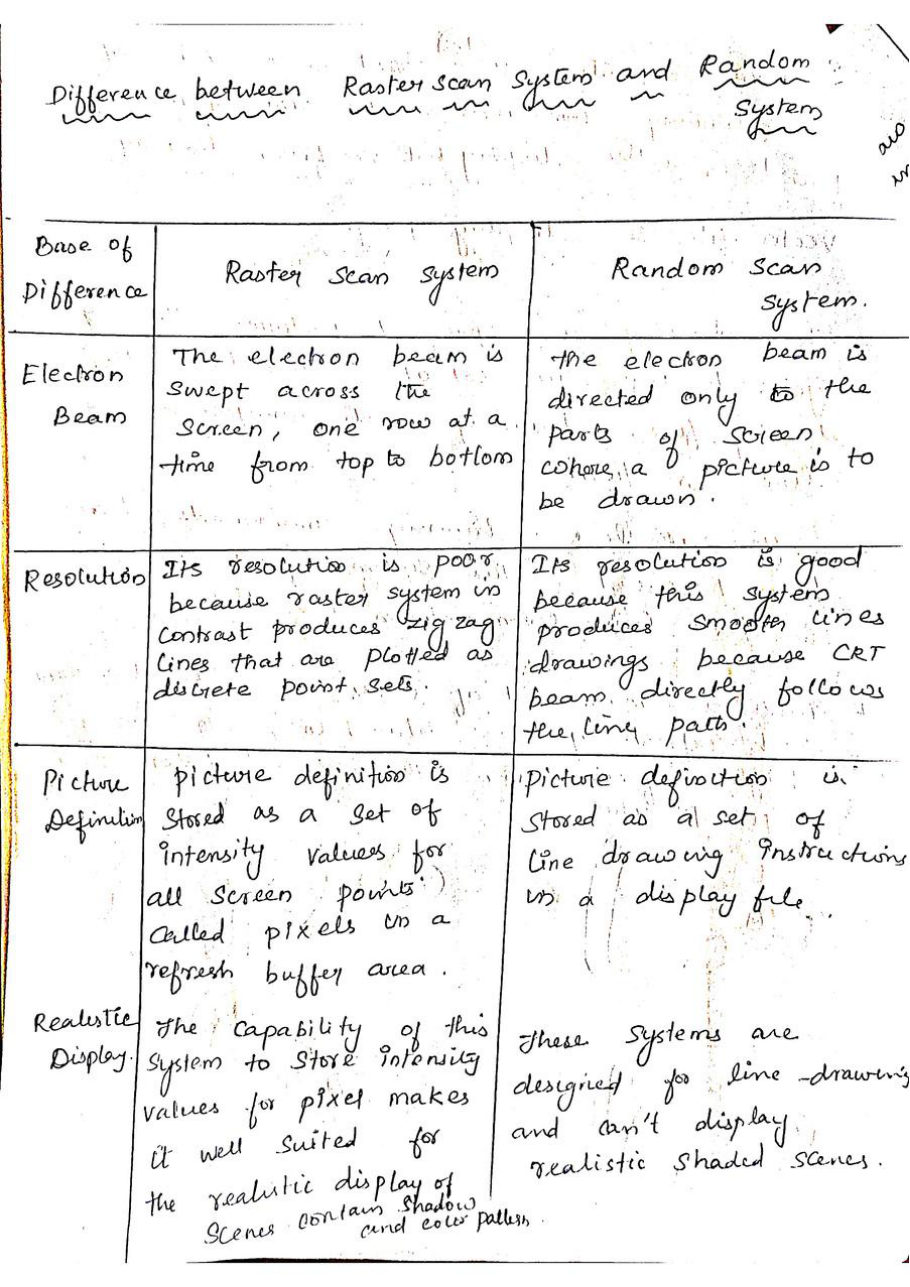 Difference between Raster scan System and Random
System
Base of
Difference
Raster Scan System
Random Scan
System.
Electron
Beam
The electron beam is
swept across the
screen, one row at a
time from top to bottom
the electron beam is
directed only to the
parts of screen
where a picture is to
be drawn.
Resolution
Its resolution is poor
because raster system in
contrast produces zig zag
lines that are plotted as
discrete point sets.
Its resolution is good
because this system
produces smooth lines
drawings because CRT
beam directly follows
the line path.
Picture
Definition
picture definition is
stored as a set of
intensity values for
all screen points
called pixels in a
refresh buffer area.
Picture definition is
stored as a set of
line drawing instructions
in a display file.
Realistic
Display.
The capability of this
system to store intensity
values for pixel makes
it well suited for
the realistic display of
scenes contain shadow
and color pattern.
These systems are
designed for line-drawing
and can't display
realistic shaded scenes.